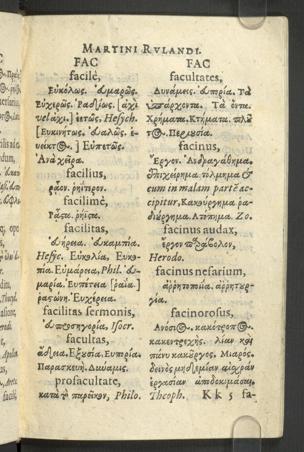 MARTINI RVLANDI.
FAC
facilè,
Εὐκόλως. Εὐμαρῶς.
Εὐχερῶς. Ῥᾳδίως. [ἀχὶ
vel ἀχι.] Hesych.
[Εὐκινήτως. Εὐπετῶς.
Ἀνὰ χεῖρα.
facilius,
ῥᾷον. ῥηίτερον.
facilimè,
Ῥᾷστα. ῥήϊστα.
facilitas,
Εὐήρεια. Εὐκαμπία.
Hesyc. Εὐκολία, Εὐκο-
πία. Εὐμάρεια, Phil. Εὐ-
μαρία. Εὐπέτεια [ῥαΐα]
ῥᾳστώνη. Εὐχέρεια.
facilitas sermonis,
Εὐπροσηγορία, Isocr.
facultas,
ἄδεια. Ἐξουσία. Εὐπορία.
Παρασκευή. Δύναμις.
pro facultate,
κατὰ τὸ παρεῖκον, Philo.
FAC
facultates,
Δυνάμεις. Εὐπορία. Τὰ
ὑπάρχοντα. Τὰ ὄντα.
Χρήματα. Κτήματα. πλοῦ
τος. Περιουσία.
facinus,
Ἔργον. Ἀνδραγάθημα.
Ἐπιχείρημα. τόλμημα &
cum in malam partē ac-
cipitur, Κακούργημα ῥᾳ-
διούργημα. Ἀτόπημα. Zo.
facinus audax,
ἔργον παράβολον,
Herodo.
facinus nefarium,
ἀρρητοποιΐα. ἀρρητουρ-
γία.
facinorosus,
Ἀνόσιος. κακότροπος.
κακεντρεχής. λίαν καὶ
πάνυ κακοῦργος. Μιαρός.
δεινὸς μηδεμίαν αἰσχρὰν
ἐργασίαν ἀποδοκιμάσαι,
Theoph. Kk 5 fa-